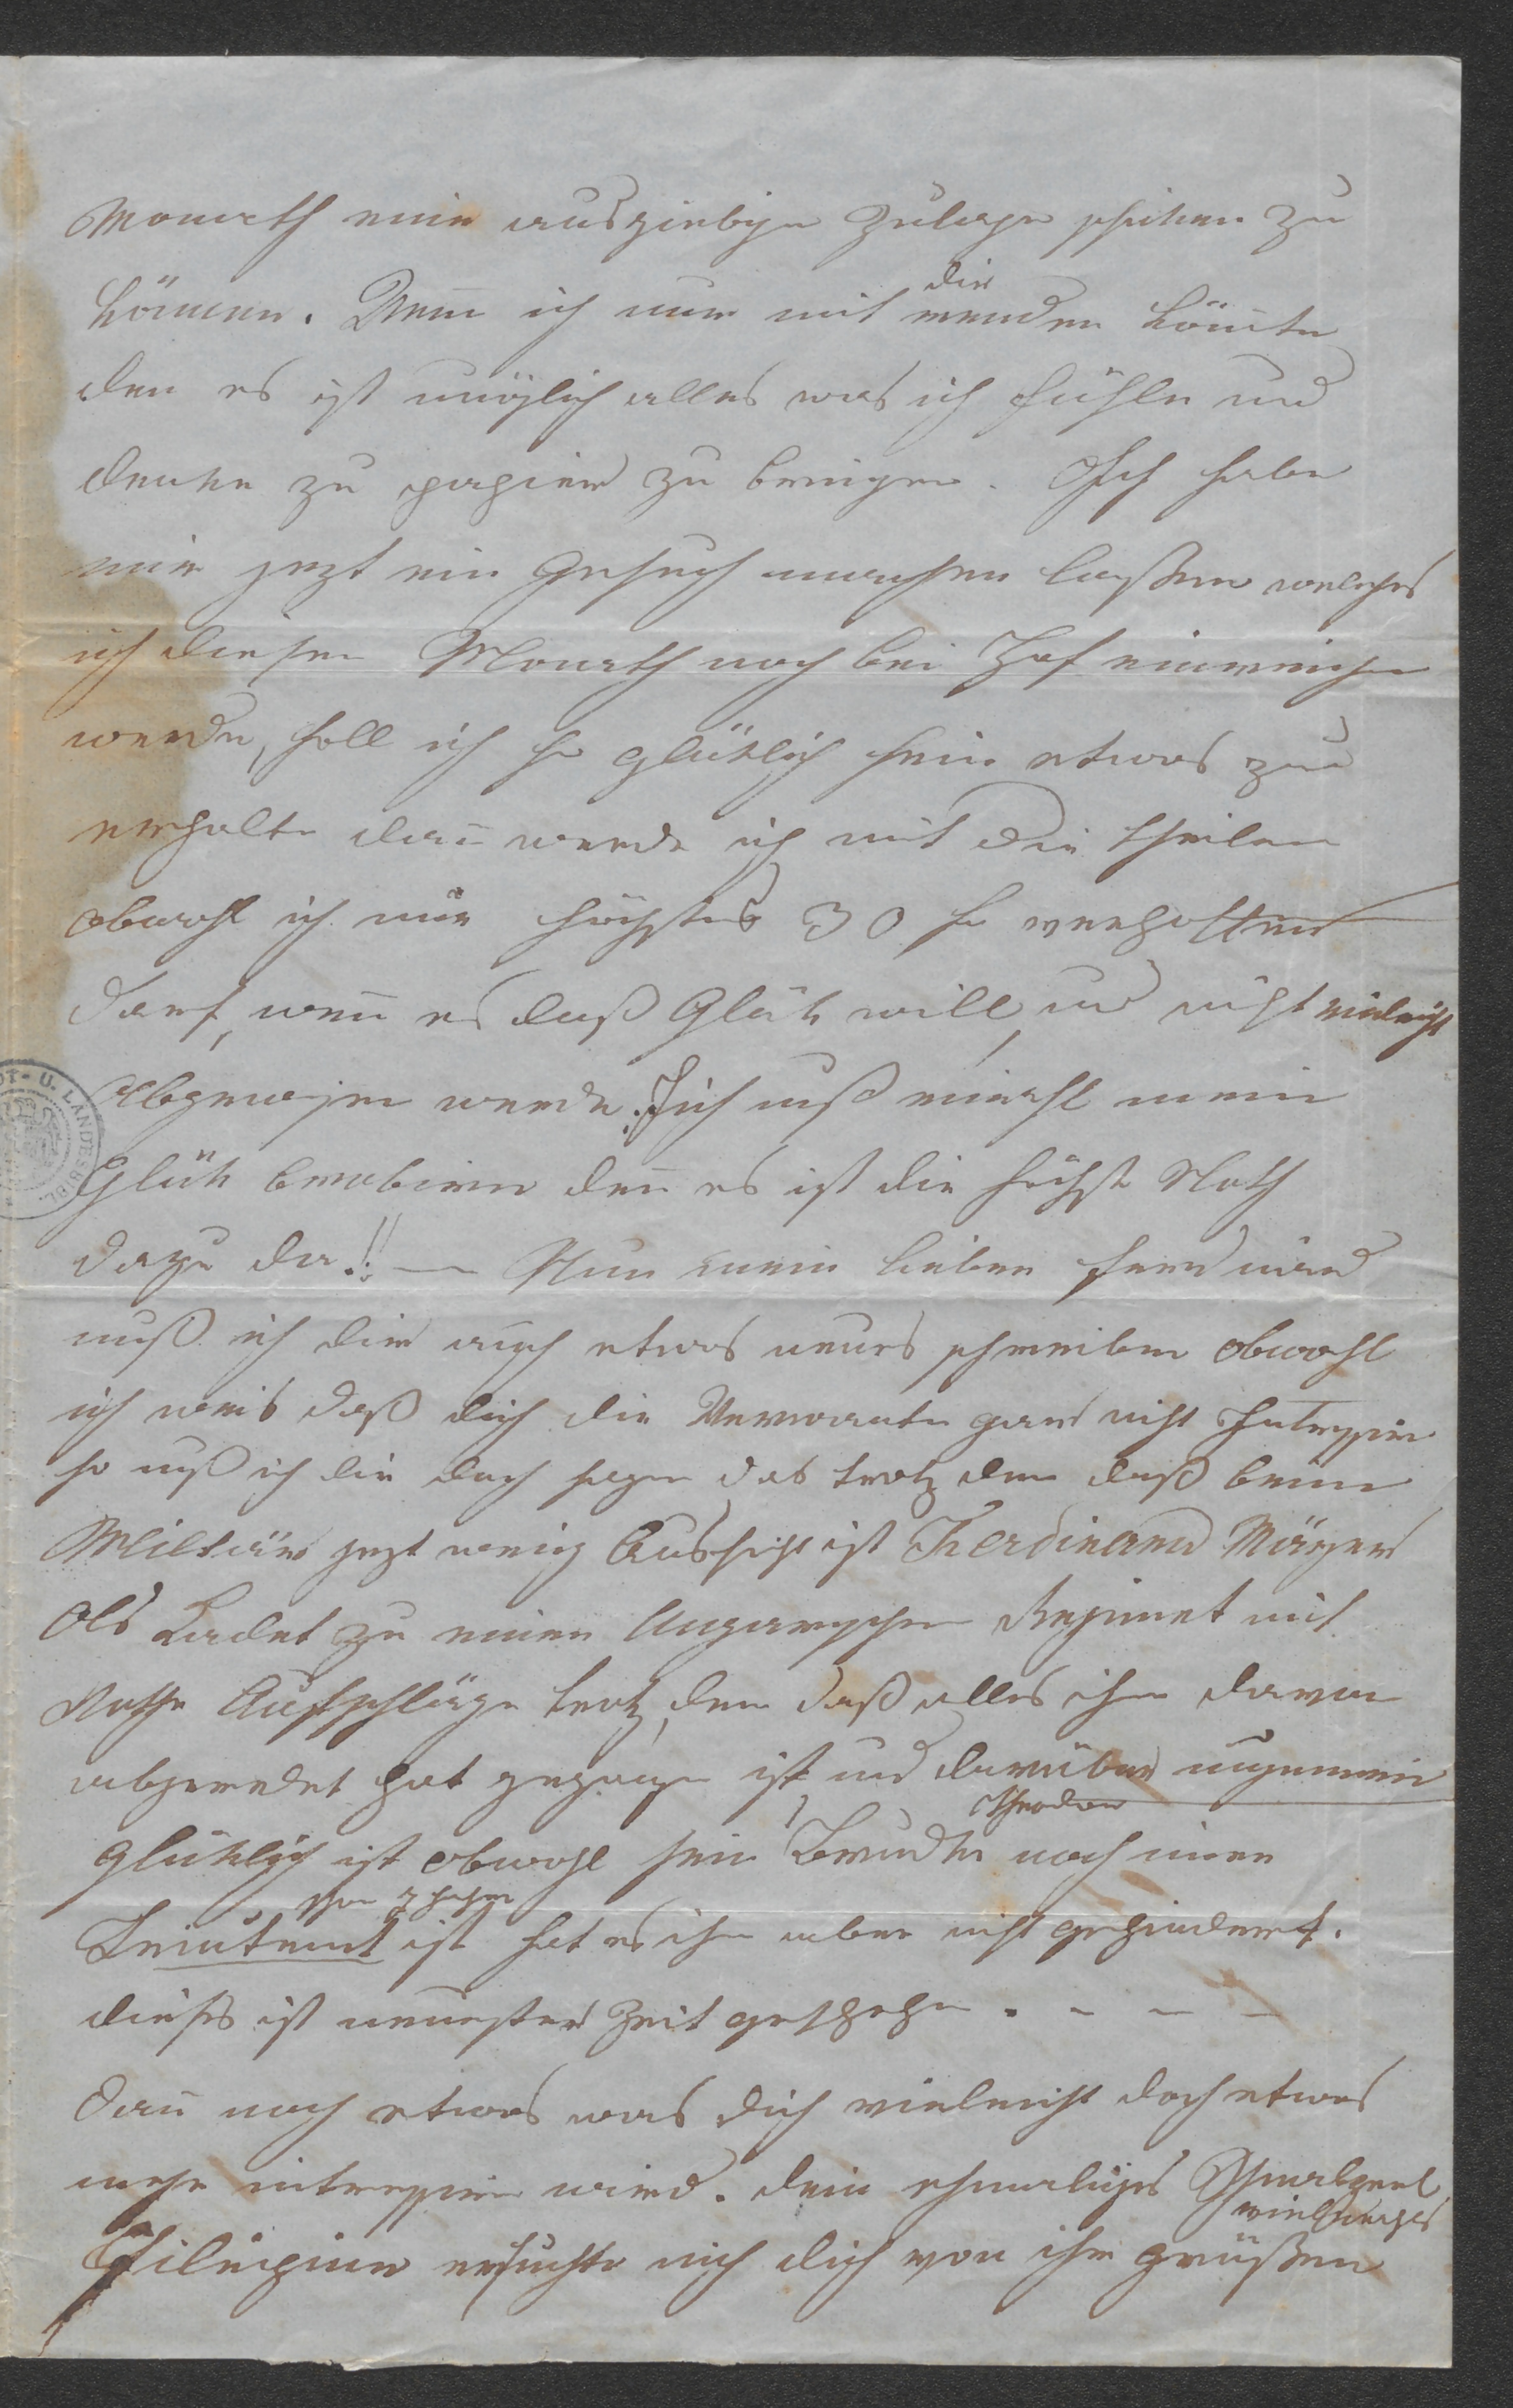 Monath eine ausgiebige Zulage schiken zu
können. Wenn ich nur mit dir reden könnte
den es ist unöglich alles was ich fühle und
denke zu papier zu bringen. Ich habe
mir jezt ein Gesuch machen laßen welches
ich diesen Monath noch bei Hof einreichen
werde, soll ich so glüklich sein etwas zu
erhalte dan̄ werde ich mit Dir theilen
obwohl ich nur höchstens 30 f verhoffen
darf, wen̄ es daß Glük will, und nicht vieleicht
Abgewisen werde. Ich muß einmahl mein
Glük brobieren den̄ es ist die höchste Noth
dazu da!! — Nun mein lieber Ferdinand
muß ich dir auch etwas neues schreiben obwohl
ich weis daß dich die Verwante gar nicht Intressiren
so muß ich dir doch sagen das trotz dem daß beim
Militär jezt wenig Aussicht ist Ferdinand Mayer
Als Kadet zu einen Ungarischen Regiment mit
Rothe Aufschläge trotz dem daß alles ihm davon
abgeredet hat gegangen ist, und darüber ungemein
glüklich ist obwohl sein Bruder Theodor noch immer
von 7 Jahren
Leiutenant ist hat es ihm aber nicht gehindert.
dieses ist neuester Zeit geschehen. - - -
Dan̄ noch etwas was dich vieleicht doch etwas
mehr intressiren wird. dein ehmaliges
ersuchte mich dich von ihr grüßen